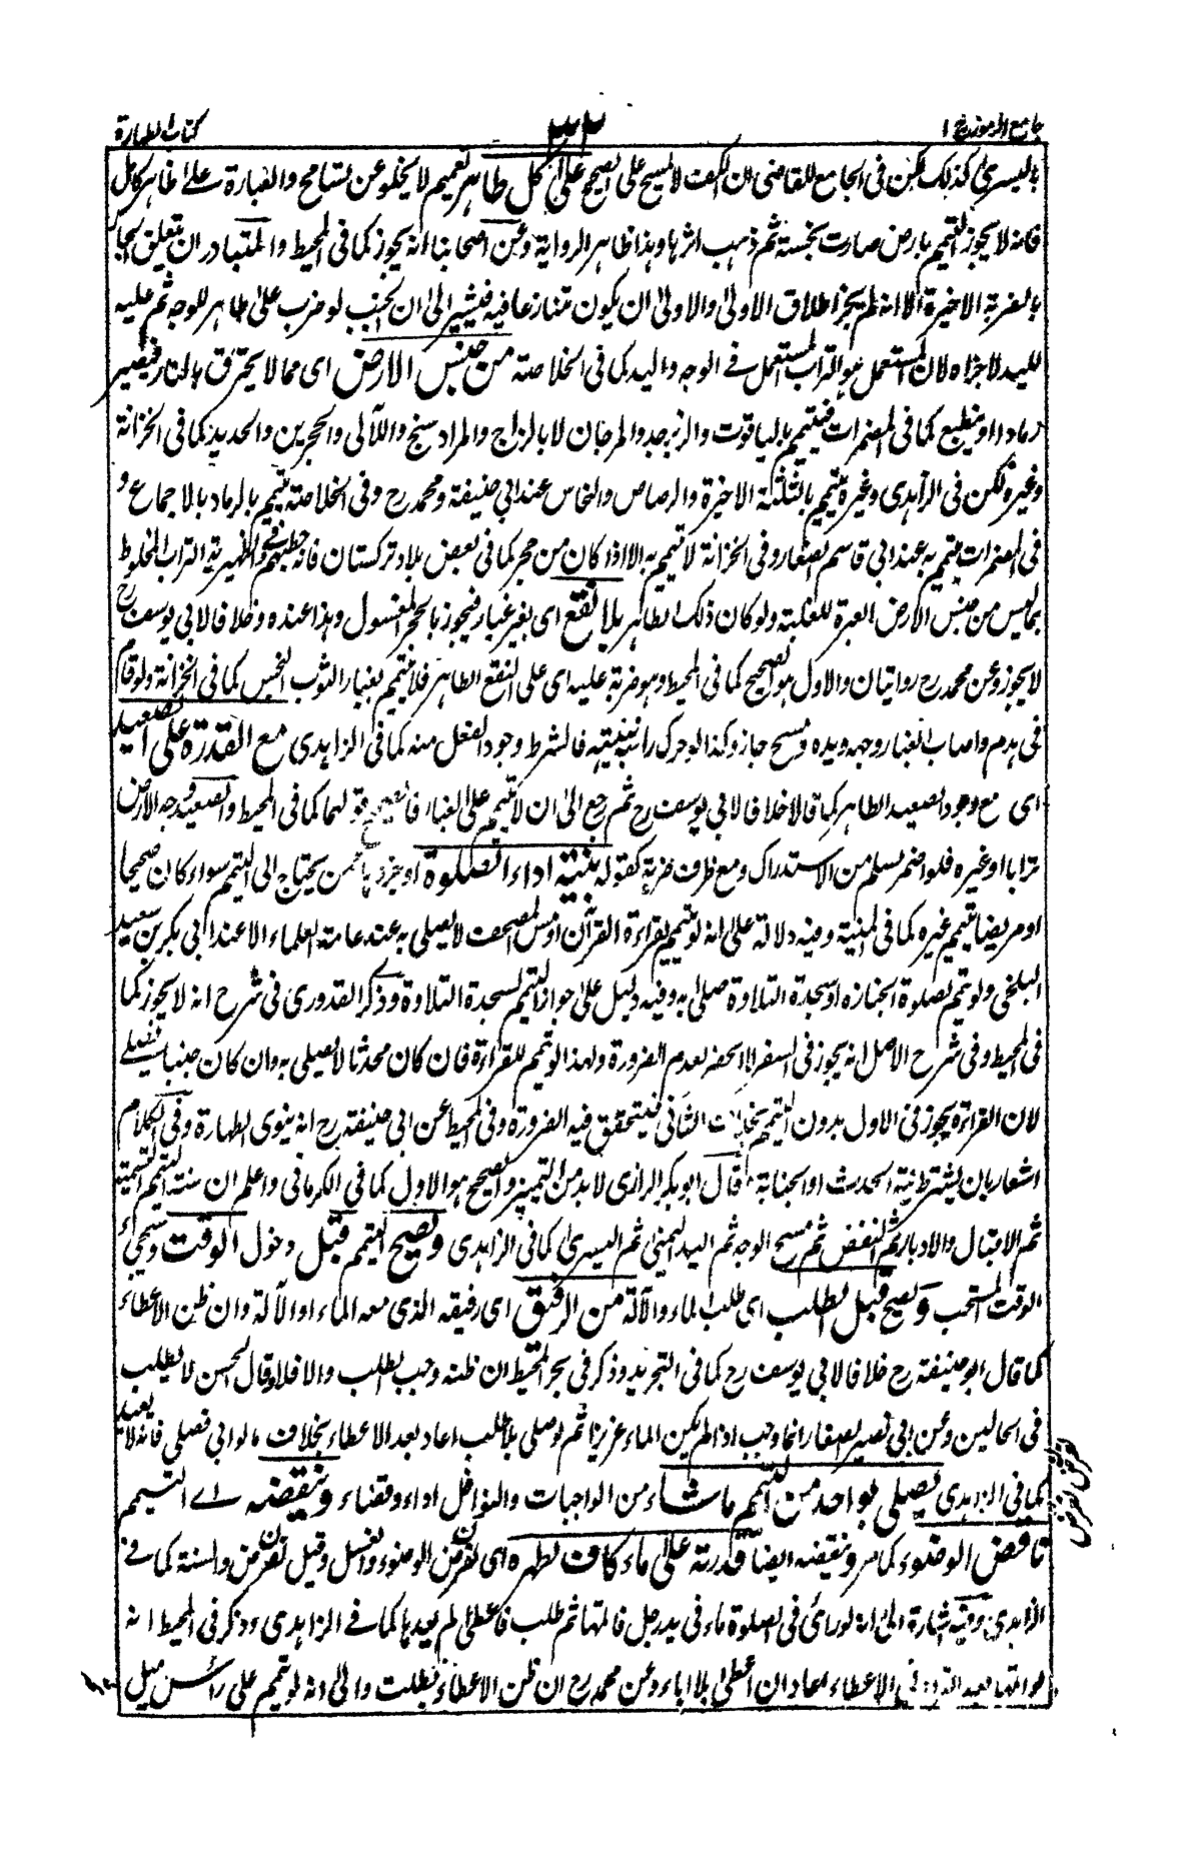 جامع الرموز ج ١
٣٢
كتاب الطهارة
باليسرى كذلك لكن فى الجامع للقاضى ان الكف لا يمسح على الصحيح على كل طاهر تعميم لا يخلو عن تسامح والعبارة على طاهر كامل
فانه لا يجوز التيمم بارض صارت نجسة ثم ذهب اثرها وهذا ظاهر الرواية وعن اصحابنا انه يجوز كما فى المحيط والمتبادر ان يتعلق
بالضربة الاخيرة الا انه لم يجز اطلاق الاولى والاولى ان يكون متنازعا فيه فيشير الى ان الجنب لو ضرب على طاهر للوجه ثم عليه
لليد لاجزاه لان المستعمل هو التراب المستعمل فى الوجه واليد كما فى الخلاصة من جنس الارض اى مما لا يحترق بالنار فيصير
رمادا او ينطبع كما فى المضمرات فيتيمم بالياقوت والزبرجد والمرجان لا بالزجاج والمرادسنج واللآلى والحجرين والحديد كما فى الخزانة
وغيره لكن فى الزاهدى وغيره يتيمم بالثلثة الاخيرة والرصاص والنحاس عند ابي حنيفة ومحمد رح وفى الخلاصة يتيمم بالرماد بالاجماع و
فى المضمرات يتيمم به عند ابى قاسم الصفار وفى الخزانة لا تيمم به الا اذا كان من حجر كما فى بعض بلاد تركستان فانه حطبهم وفى الظهيرية التراب المخلوط
بما ليس من جنس الارض العبرة للغلبة ولو كان ذلك الطاهر بلا نقع اى بغير غبار فيجوز بالحجر المغسول وهذا عنده وخلافا لابى يوسف رح
لا يجوز وعن محمد رح روايتان والاول هو الصحيح كما فى المحيط وهو ضربة عليه اى على النقع الطاهر فلا يتيمم بغبار الثوب النجس كما فى الخزانة ولو قام
فى هدم واصاب الغبار وجهه ويده ومسح جاز وكذا لو حرك راسه بنيته فالشرط وجود الفعل منه كما فى الزاهدى مع القدرة على الصعيد
اى مع وجود الصعيد الطاهر كما قالا خلافا لابي يوسف رح ثم رجع الى ان لا يتيمم على الغبار فالصحيح قولهما كما فى المحيط والصعيد وجه الارض
ترابا او غيره فلو اضمر سلم من الاستدراك ومع ظرف ضربة كقوله بنية اداء الصلوة او جزءها فمن يحتاج الى التيمم سواء كان صحيحا
او مريضا يتيمم غيره كما فى المنية وفيه دلالة على انه لو تيمم لقراءة القرآن او مس المصحف لا يصلى به عند عامة العلماء الا عند ابى بكر بن سعيد
البلخى ولو تيمم لصلوة الجنازة او سجدة التلاوة صلى به وفيه دليل على جواز التيمم لسجدة التلاوة وذكر القدورى فى شرح انه لا يجوز كما
فى المحيط وفى شرح الاصل انه يجوز فى السفر لا الحضر لعدم الضرورة ولهذا لو تيمم للقراءة فان كان محدثا لا يصلى به وان كان جنبا يصلى
لان القراءة يجوز فى الاول بدون التيمم بخلاف الثانى فيتحقق فيه الضرورة وفى المحيط عن ابى حنيفة رح انه ينوى الطهارة وفى الكلام
اشعار بان يشترط نية الحدث او الجنابة قال ابو بكر الرازى لا بد من التمييز والصحيح هو الاول كما فى الكرمانى واعلم ان سنة التيمم التسمية
ثم الاقبال والادبار ثم النفض ثم مسح الوجه ثم اليد اليمنى ثم اليسرى كما فى الزاهدى ويصح التيمم قبل دخول الوقت وسيجئ
الوقت المستحب ويصح قبل الطلب اى طلب الماء والآلة من الرفيق اى رفيقه الذى معه الماء او الآلة وان ظن الاعطاء
كما قال ابو حنيفة رح خلافا لابي يوسف رح كما فى التجريد وذكر فى بحر المحيط ان ظنه وجب الطلب والا فلا وقال الحسن لا يطلب
فى الحالين وعن ابى نصير الصفار انما وجب اذا لم يكن الماء عزيزا ثم لو صلى بلا طلب اعاد بعد الاعطاء بخلاف ما لو ابى فصلى فانه لا يعيد
كما فى الزاهدى يصلى بواحد من التيمم ما شاء من الواجبات والنوافل اداء وقضاء وينقضه اى التيمم
ناقض الوضوء كما مر وينقضه ايضا قدرته على ماء كاف لطهره اى لفرض الوضوء والغسل وقيل لفرض والسنة كما فى
الزاهدى وفيه اشارة الى انه لو راى فى الصلوة ماء فى يد رجل فاتمها ثم طلب فاعطى لم يعيدها كما فى الزاهدى وذكر فى المحيط انه
الاعطاء اعاد ان اعطى بلا اباء وعن محمد رح ان ظن الاعطاء بطلت والى انه لو تيمم على راس ميل